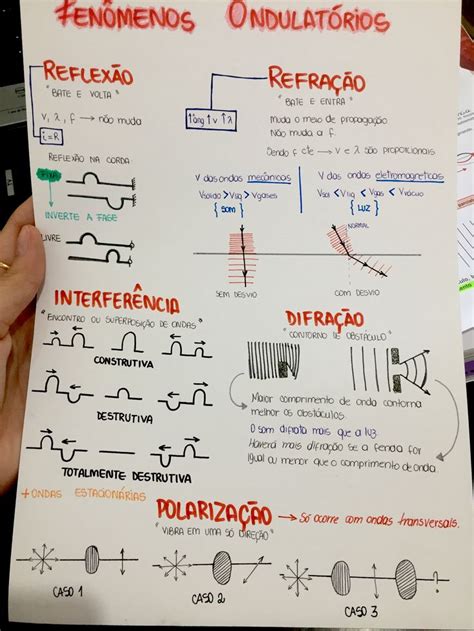 FENÔMENOS ONDULATÓRIOS
REFLEXÃO
"BATE E VOLTA"
V, λ, f → não muda
i = R
REFLEXÃO NA CORDA
FIXA
INVERTE A FASE
LIVRE
REFRAÇÃO
"BATE E ENTRA"
↑âng ↑v ↑λ
Muda o meio de propagação
Não muda a f.
Sendo f cte → v e λ são proporcionais
V das ondas mecânicas
Vsólido > Vliq > Vgases
{ SOM }
V das ondas eletromagnéticas
Vsol < Vliq < Vgas < Vvácuo
{ LUZ }
NORMAL
SEM DESVIO
COM DESVIO
INTERFERÊNCIA
"ENCONTRO OU SUPERPOSIÇÃO DE ONDAS"
CONSTRUTIVA
DESTRUTIVA
TOTALMENTE DESTRUTIVA
+ ONDAS ESTACIONÁRIAS
DIFRAÇÃO
"CONTORNO DE OBSTÁCULO"
Maior comprimento de onda contorna
melhor os obstáculos.
O som difrata mais que a luz.
Haverá mais difração se a fenda for
igual ou menor que o comprimento de onda.
POLARIZAÇÃO → Só ocorre com ondas transversais.
"VIBRA EM UMA SÓ DIREÇÃO"
?
CASO 1
CASO 2
CASO 3